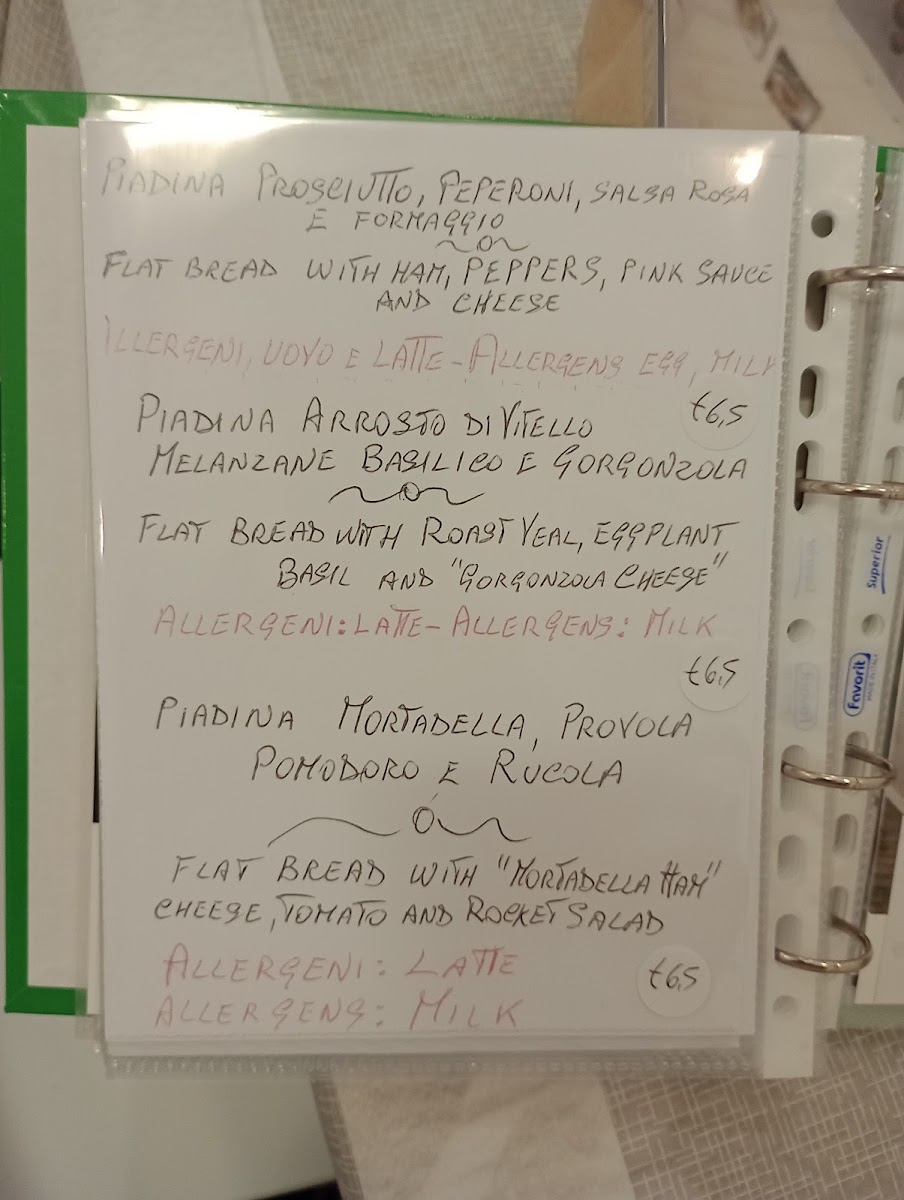 PIADINA PROSCIUTTO, PEPERONI, SALSA ROSA
E FORMAGGIO
FLAT BREAD WITH HAM, PEPPERS, PINK SAUCE
AND CHEESE
ALLERGENI, UOVO E LATTE - ALLERGENS EGG, MILK
€6,5
PIADINA ARROSTO DI VITELLO
MELANZANE BASILICO E GORGONZOLA
FLAT BREAD WITH ROAST VEAL, EGGPLANT
BASIL AND "GORGONZOLA CHEESE"
ALLERGENI: LATTE - ALLERGENS: MILK
€6,5
PIADINA MORTADELLA, PROVOLA
POMODORO E RUCOLA
FLAT BREAD WITH "MORTADELLA HAM"
CHEESE, TOMATO AND ROCKET SALAD
ALLERGENI: LATTE
ALLERGENS: MILK
€6,5
Superior
Favorit
MADE IN ITALY